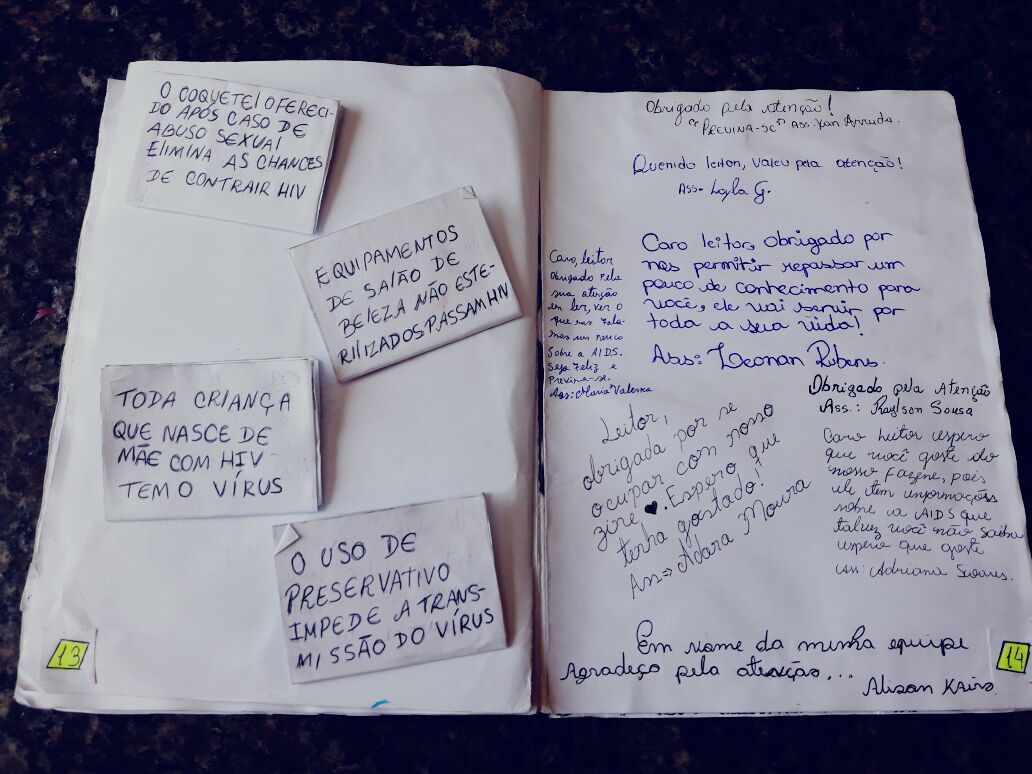 O COQUETEL OFERECI-
DO APÓS CASO DE
ABUSO SEXUAL
ELIMINA AS CHANCES
DE CONTRAIR HIV
EQUIPAMENTOS
DE SALÃO DE
BELEZA NÃO ESTE-
RILIZADOS PASSAM HIV
TODA CRIANÇA
QUE NASCE DE
MÃE COM HIV
TEM O VÍRUS
O USO DE
PRESERVATIVO
IMPEDE A TRANS-
MISSÃO DO VÍRUS
13
Obrigado pela atenção!
"PREVINA-SE" Ass: Yan Arruda.
Querido leitor, valeu pela atenção!
Ass- Layla G.
Caro leitor, obrigado por
nos permitir repassar um
pouco de conhecimento para
você, ele vai servir por
toda a sua vida!
Ass: Leonan Rubens.
Caro, leitor
Obrigado pela
sua atenção
em ler, ver o
que nos fala-
mos um pouco
Sobre a AIDS.
Seja Feliz e
Previna-se.
Ass: Maria Valeska
Obrigado pela Atenção
Ass.: Raylson Sousa
Leitor,
obrigada por se
ocupar com nosso
zine ♥. Espero que
tenha gostado!
Ass=> Adara Moura
Caro Leitor espero
que você goste do
nosso fazene, pois
ele tem informações
sobre a AIDS que
talvez você não saiba
espero que goste
Ass: Adriana Soares.
Em nome da minha equipe
Agradeço pela atenção...
Alison
14